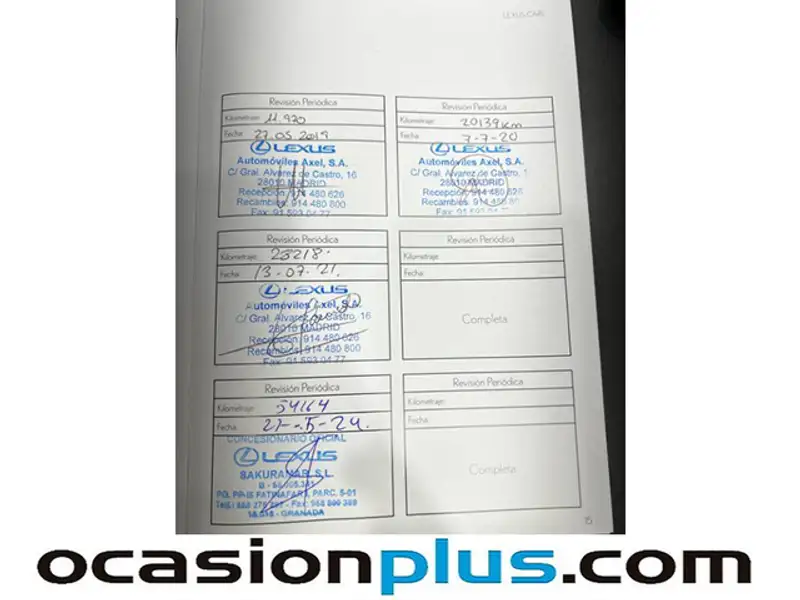 LEXUS CARE
Revisión Periódica
Kilometraje: 11.920
Fecha: 27.05.2019
LEXUS
Automóviles Axel, S.A.
C/ Gral. Alvarez de Castro, 16
28010 MADRID
Recepción: 914 480 626
Recambios: 914 480 800
Fax: 91 593 04 77
Revisión Periódica
Kilometraje: 20139 km
Fecha: 7-7-20
LEXUS
Automóviles Axel, S.A.
C/ Gral. Alvarez de Castro, 1
28010 MADRID
Recepción: 914 480 626
Recambios: 914 480 80
Fax: 91 593 04 77
Revisión Periódica
Kilometraje: 25218.
Fecha: 13-07-21.
LEXUS
Automóviles Axel, S.A.
C/ Gral. Alvarez de Castro, 16
28010 MADRID
Recepción: 914 480 626
Recambios: 914 480 800
Fax: 91 593 04 77
Revisión Periódica
Kilometraje:
Fecha:
Completa
Revisión Periódica
Kilometraje: 54164
Fecha: 27-5-24.
CONCESIONARIO OFICIAL
LEXUS
SAKURAMAR, S.L.
PARC. 5-01
GRANADA
Revisión Periódica
Kilometraje:
Fecha:
Completa
15
ocasionplus.com